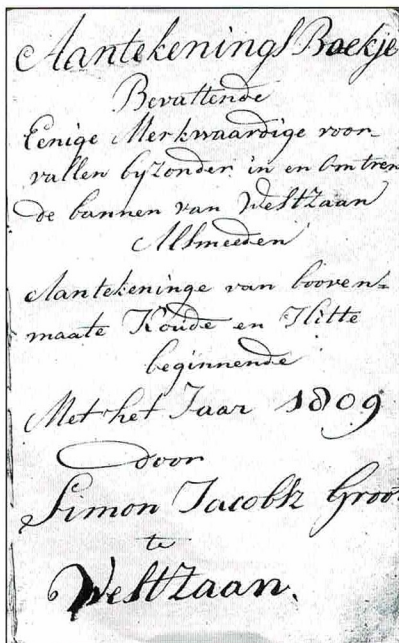 Aantekenings Boekje
Bevattende
Eenige Merkwaardige voor-
vallen byzonder in en omtren
de bannen van WestZaan
Alsmeeden
Aantekeninge van booven=
maate Koude en Hitte
beginnende
Met het Jaar 1809
door
Simon Jacobsz Groot
te
WestZaan.